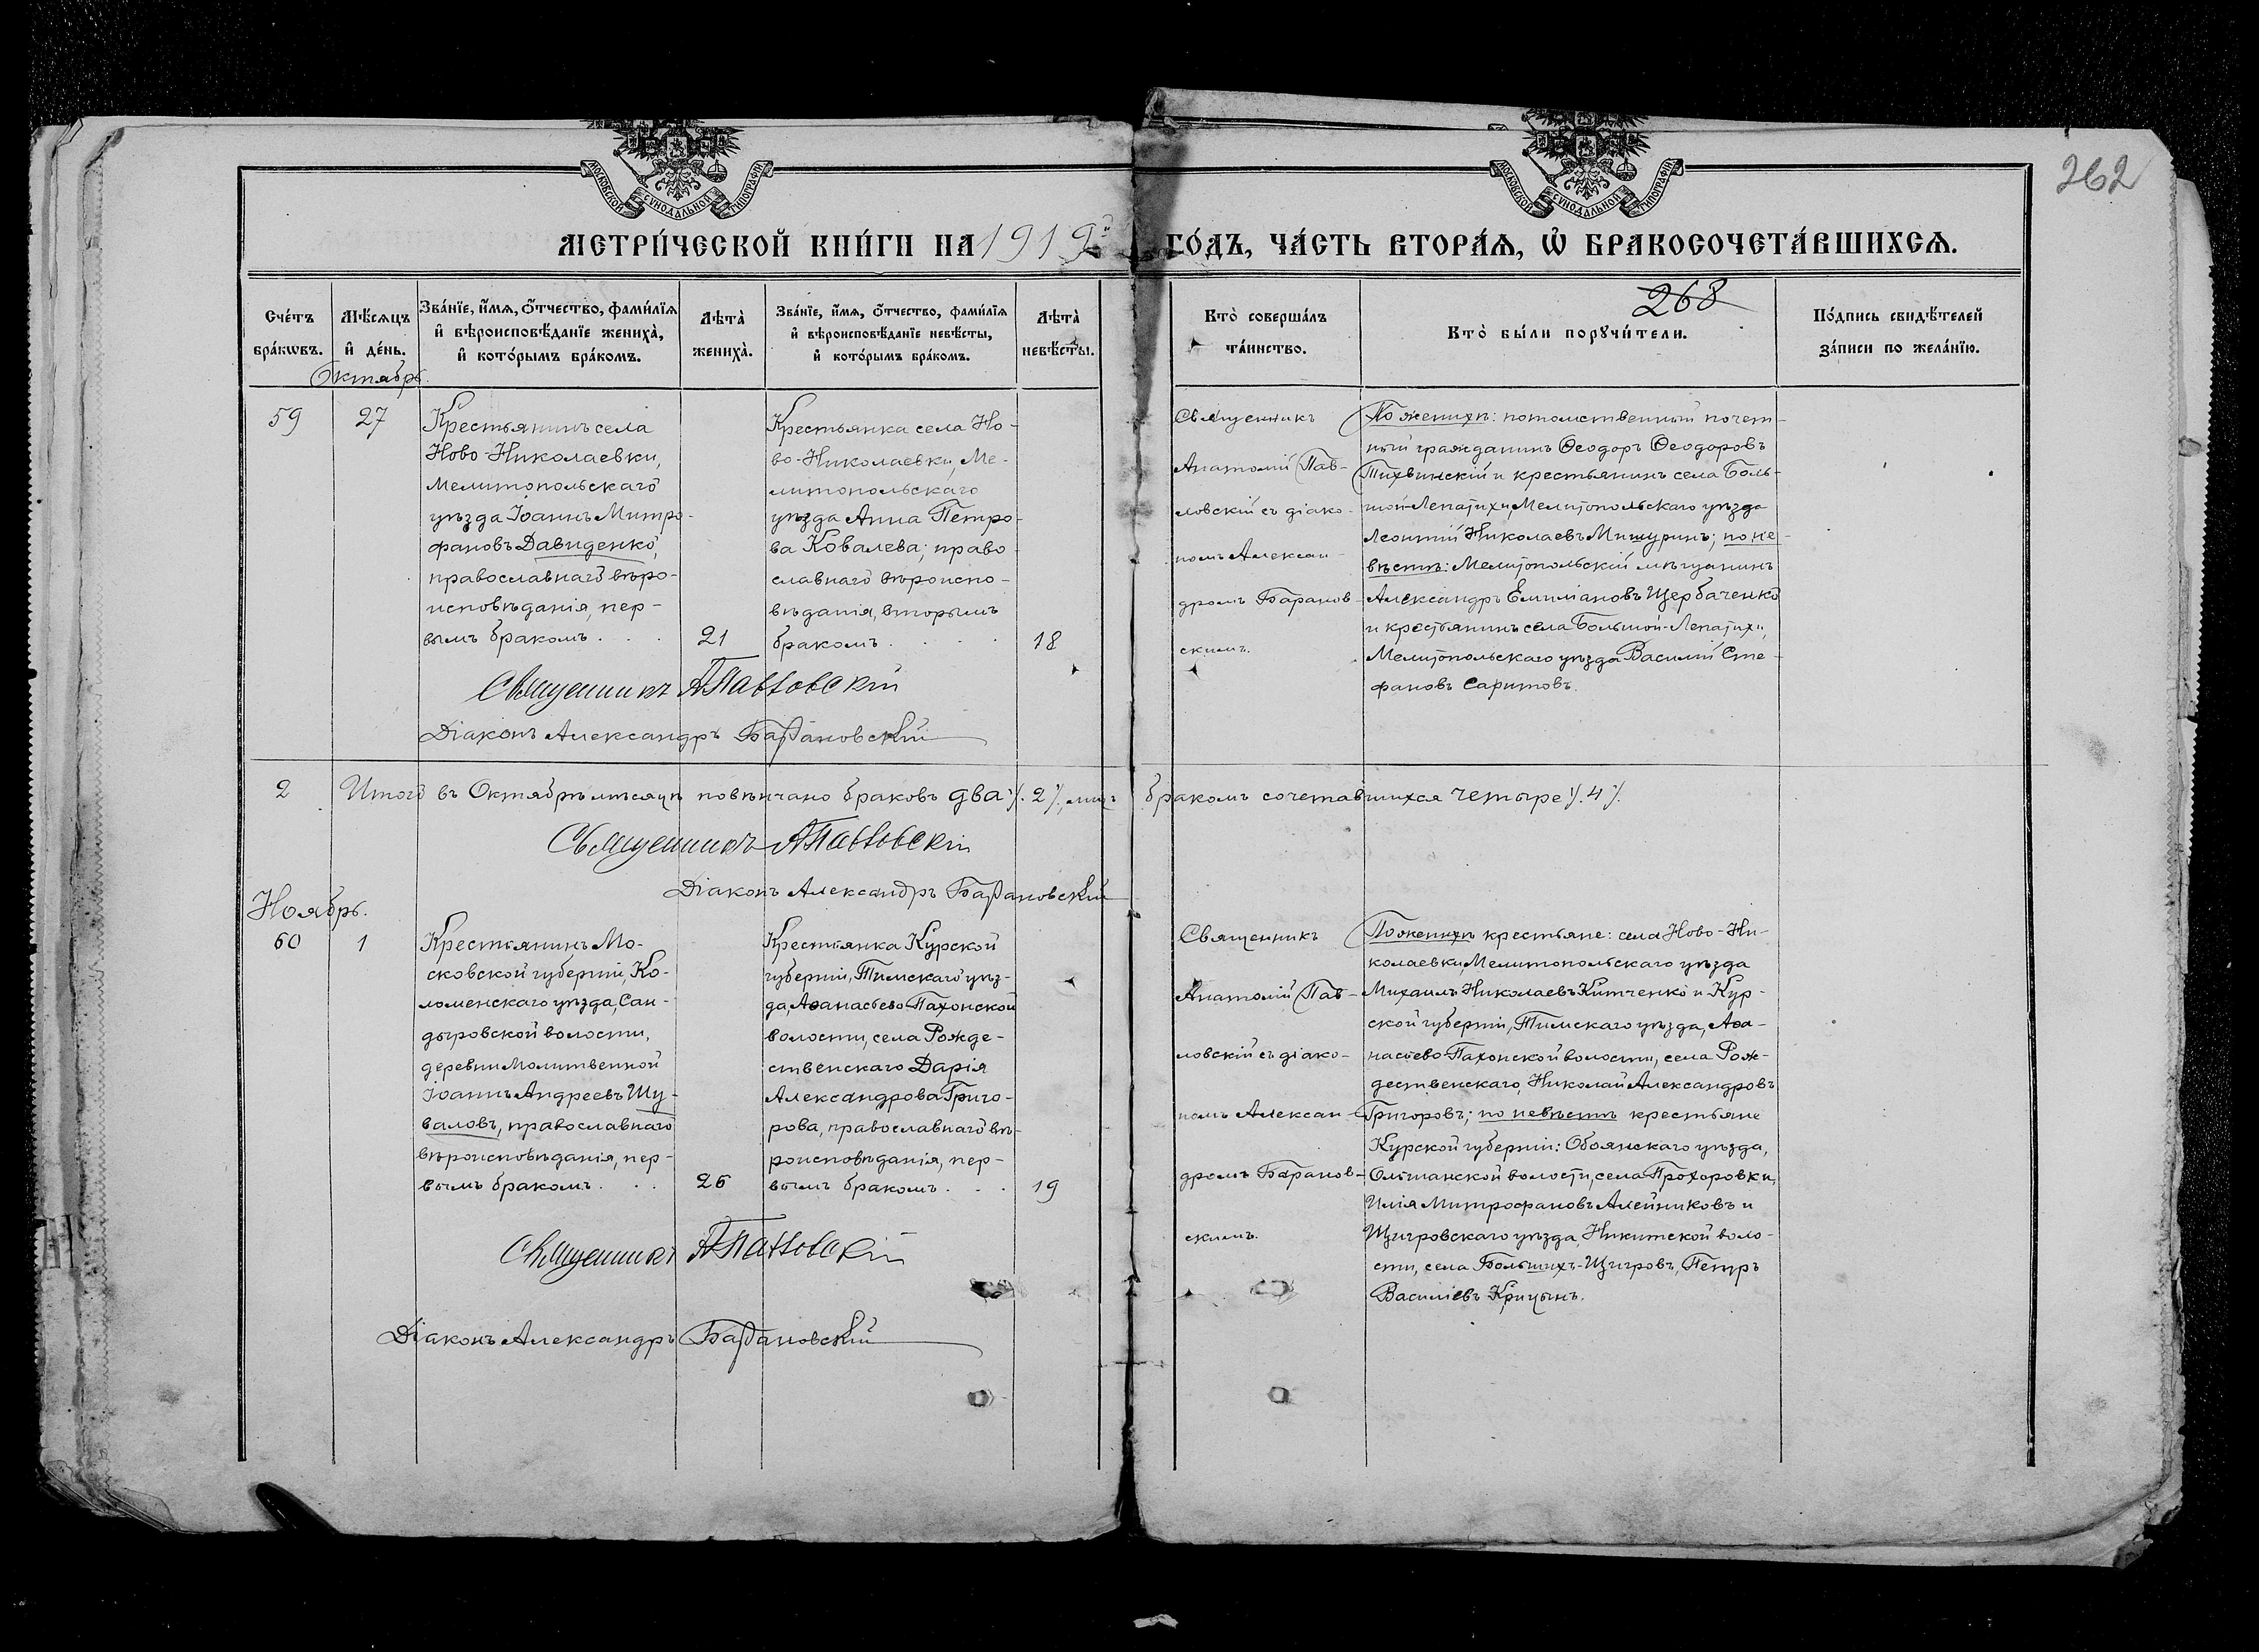 262
МОСКОВСКОЙ СУНОДАЛЬНОЙ ТИПОГРАФІИ
МОСКОВСКОЙ СУНОДАЛЬНОЙ ТИПОГРАФІИ
МЕТРИ́ЧЕСКОЙ КНИ́ГИ НА 1919й ГО́ДЪ, ЧА́СТЬ ВТОРА́Ѧ, Ѡ҆ БРАКОСОЧЕТА́ВШИХСѦ.
268
Сче́тъ
бра́кѡвъ.
Мѣ́сѧцъ
и҆ де́нь.
Зва́нїе, и҆́мѧ, ѻ҆́тчество, фами́лїѧ
и҆ вѣроисповѣ́данїе жениха̀,
и҆ кото́рымъ бра́комъ.
Лѣта̀
жениха̀.
Зва́нїе, и҆́мѧ, ѻ҆́тчество, фами́лїѧ
и҆ вѣроисповѣ́данїе невѣ́сты,
и҆ кото́рымъ бра́комъ.
Лѣта̀
невѣ́сты.
Кто̀ соверша́лъ
та́инство.
Кто̀ бы́ли порꙋчи́тели.
По́дпись свидѣ́телей
за́писи по жела́нїю.
Октябрь.
59
27
Крестьянинъ села
Ново-Николаевки,
Мелитопольскаго
уѣзда Іоаннъ Митро-
фановъ Давиденко,
православнаго вѣро-
исповѣданія, пер-
вымъ бракомъ . . .
21
Крестьянка села Но-
во-Николаевки, Ме-
литопольскаго
уѣзда Анна Петро-
ва Ковалева; право-
славнаго вѣроиспо-
вѣданія, вторымъ
бракомъ . . .
18
Священникъ
Анатолій Пав-
ловскій съ діако-
номъ Алексан-
дромъ Баранов-
скимъ.
По женихѣ: потомственный почет-
ный гражданинъ Ѳеодоръ Ѳеодоровъ
Тихвинскій и крестьянинъ села Боль-
шой-Лепатихи, Мелитопольскаго уѣзда
Леонтій Николаевъ Мишуринъ; по не-
вѣстѣ: Мелитопольскій мѣщанинъ
Александръ Емиліановъ Щербаченко
и крестьянинъ села Большой-Лепатихи,
Мелитопольскаго уѣзда Василій Сте-
фановъ Саритовъ.
Священникъ АПавловскій
Діаконъ Александръ Барановскій
2
Итого въ Октябрѣ мѣсяцѣ повѣнчано браковъ два ./. 2 ./., лицъ бракомъ сочетавшихся четыре ./. 4 ./.
Священникъ АПавловскій
Діаконъ Александръ Барановскій
Ноябрь.
60
1
Крестьянинъ Мо-
сковской губерніи, Ко-
ломенскаго уѣзда, Сан-
дыровской волости,
деревни Молитвенной
Іоаннъ Андреевъ Шу-
валовъ, православнаго
вѣроисповѣданія, пер-
вымъ бракомъ . . .
26
Крестьянка Курской
губерніи, Тимскаго уѣз-
да, Аѳанасьево-Пахонской
волости, села Рожде-
ственскаго Дарія
Александрова Григо-
рова, православнаго вѣ-
роисповѣданія, пер-
вымъ бракомъ . . .
19
Священникъ
Анатолій Пав-
ловскій съ діако-
номъ Алексан-
дромъ Баранов-
скимъ.
По женихѣ крестьяне: села Ново-Ни-
колаевки, Мелитопольскаго уѣзда
Михаилъ Николаевъ Китченко и Кур-
ской губерніи, Тимскаго уѣзда, Аѳа-
насьево-Пахонской волости, села Рож-
дественскаго, Николай Александровъ
Григоровъ; по невѣстѣ крестьяне
Курской губерніи: Обоянскаго уѣзда,
Ольшанской волости, села Прохоровки,
Илія Митрофановъ Алейниковъ и
Щигровскаго уѣзда, Никитской воло-
сти, села Большихъ-Щигровъ, Петръ
Василіевъ Крицынъ.
Священникъ АПавловскій
Діаконъ Александръ Барановскій